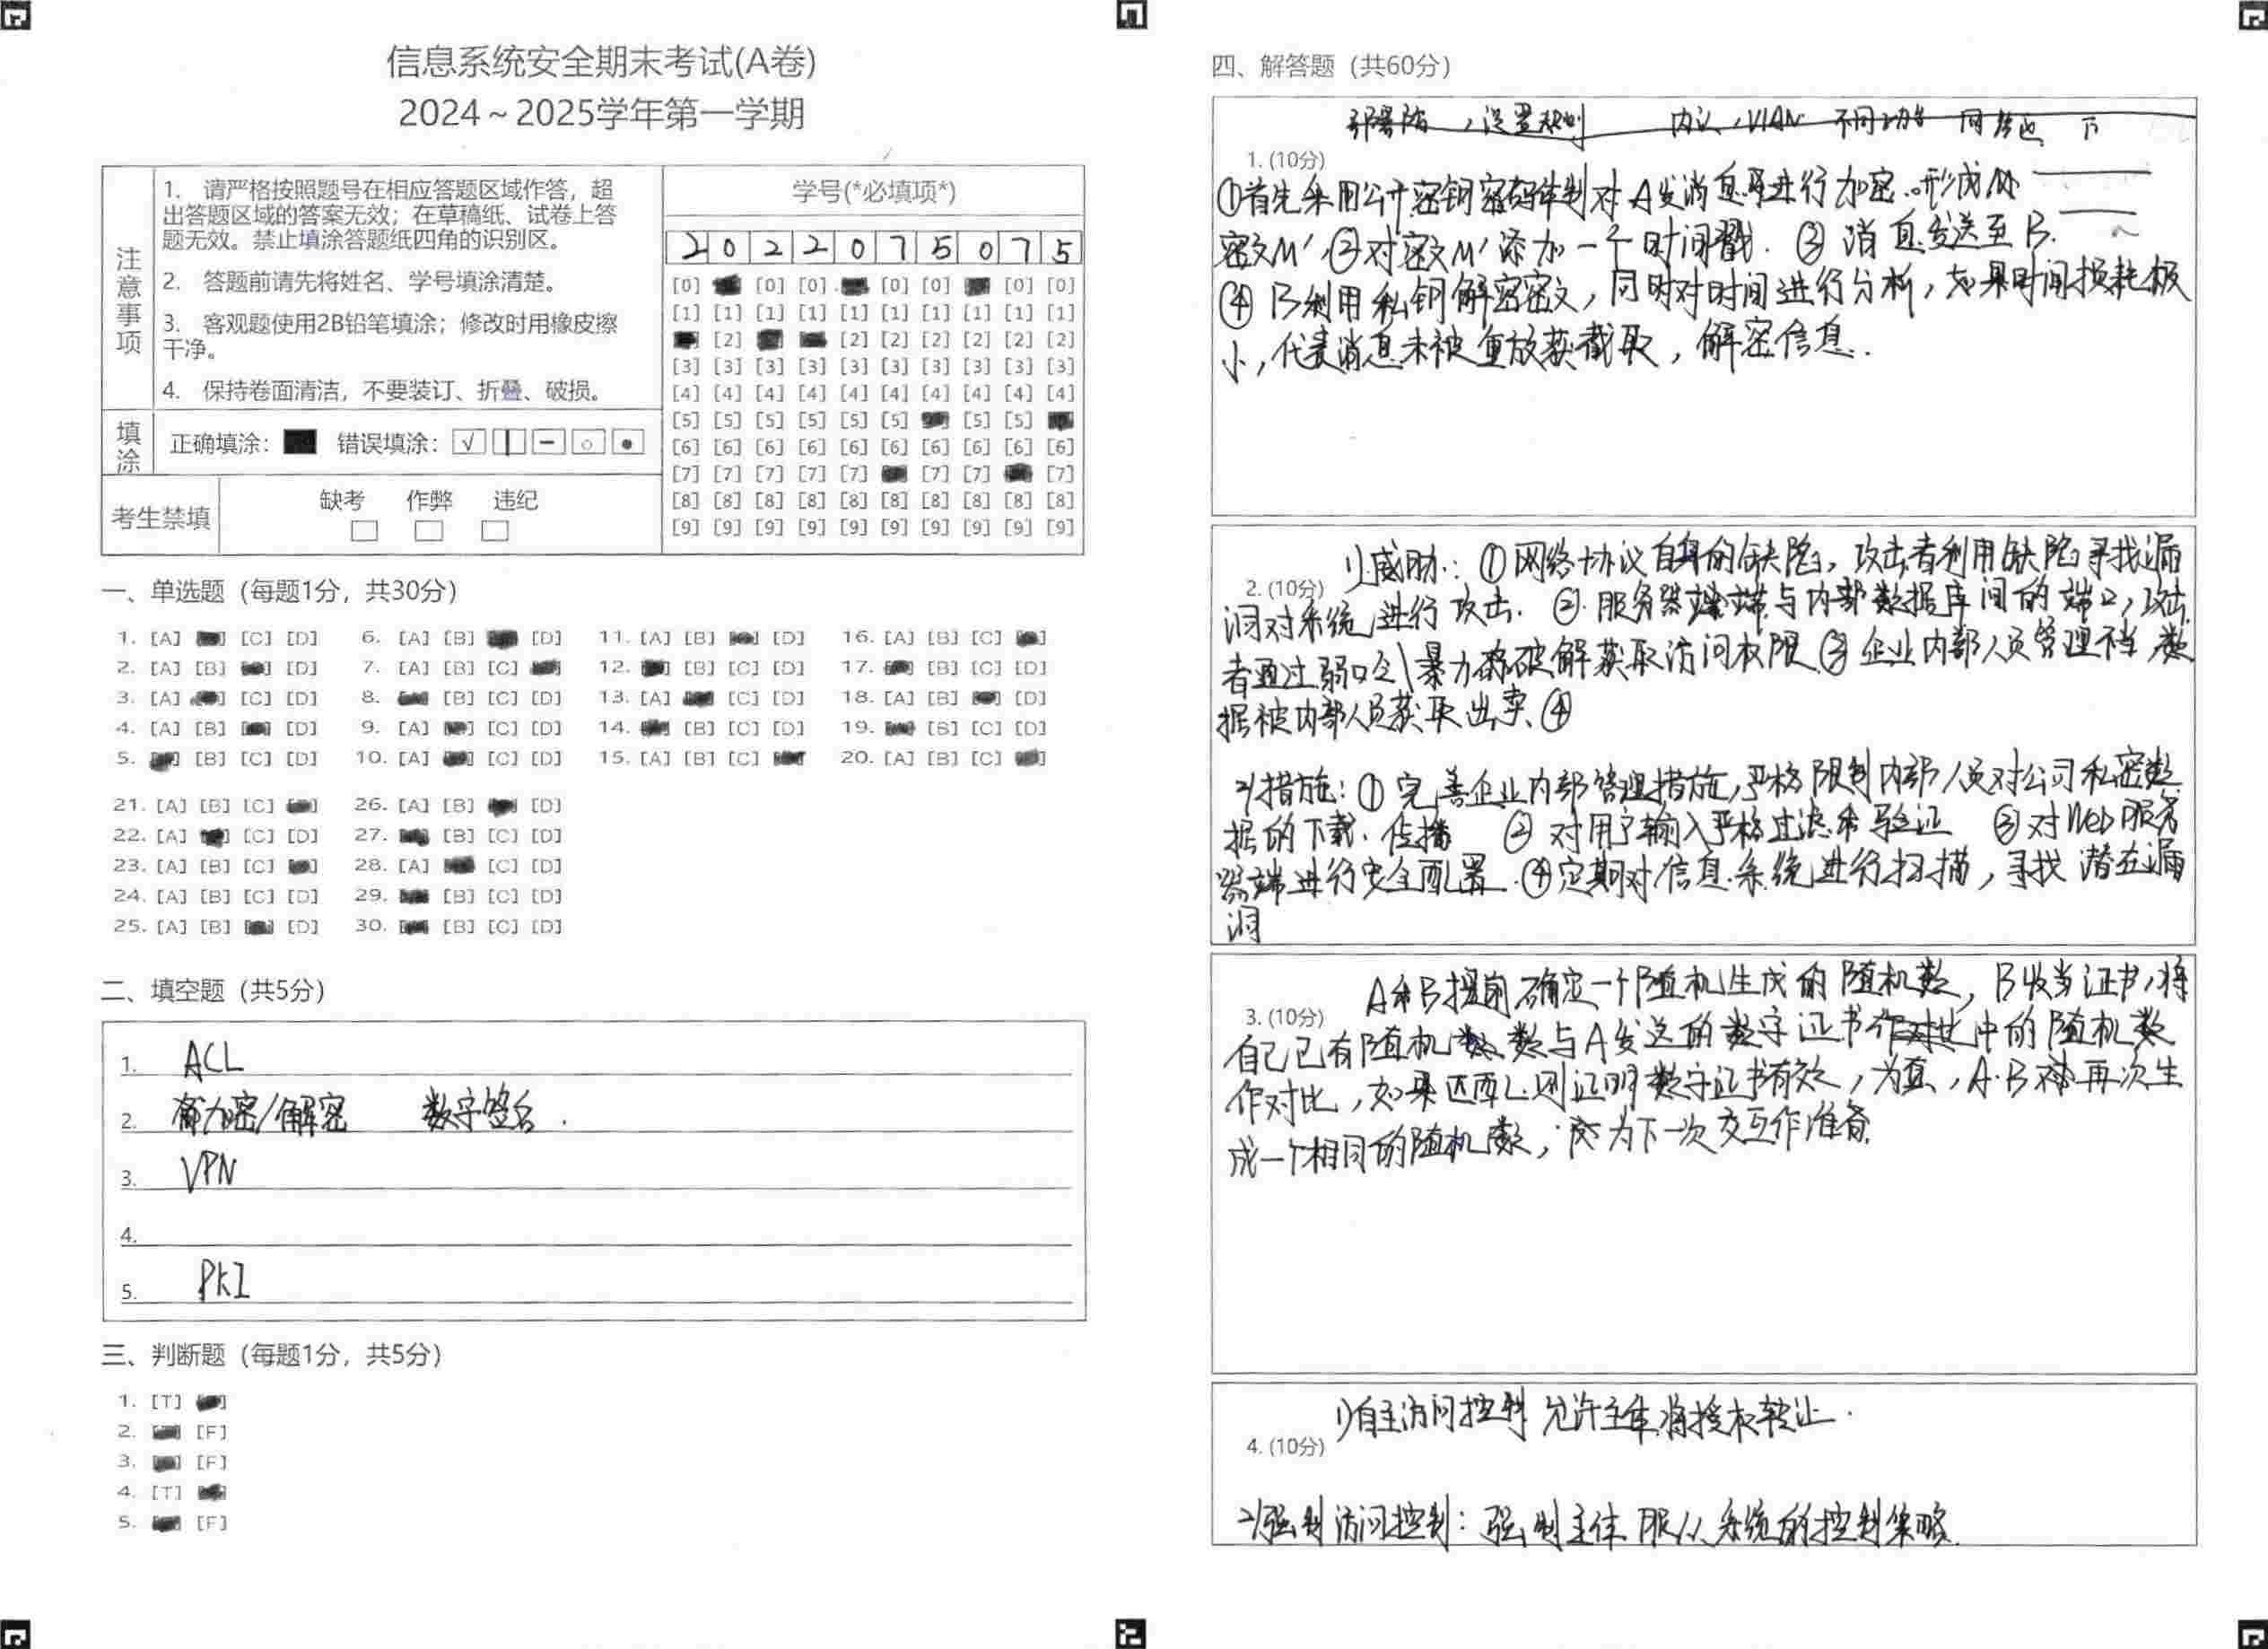 信息系统安全期末考试(A卷)
2024～2025学年第一学期
注意事项
1. 请严格按照题号在相应答题区域作答，超
出答题区域的答案无效；在草稿纸、试卷上答
题无效。禁止填涂答题纸四角的识别区。
2. 答题前请先将姓名、学号填涂清楚。
3. 客观题使用2B铅笔填涂；修改时用橡皮擦
干净。
4. 保持卷面清洁，不要装订、折叠、破损。
填涂
正确填涂： 错误填涂：
考生禁填
缺考 作弊 违纪
学号(*必填项*)
2 0 2 2 0 7 5 0 7 5
[0] [0] [0] [0] [0] [0] [0]
[1] [1] [1] [1] [1] [1] [1] [1] [1] [1]
[2] [2] [2] [2] [2] [2] [2]
[3] [3] [3] [3] [3] [3] [3] [3] [3] [3]
[4] [4] [4] [4] [4] [4] [4] [4] [4] [4]
[5] [5] [5] [5] [5] [5] [5] [5]
[6] [6] [6] [6] [6] [6] [6] [6] [6] [6]
[7] [7] [7] [7] [7] [7] [7] [7]
[8] [8] [8] [8] [8] [8] [8] [8] [8] [8]
[9] [9] [9] [9] [9] [9] [9] [9] [9] [9]
一、单选题（每题1分，共30分）
1. [A] [C] [D] 6. [A] [B] [D] 11. [A] [B] [D] 16. [A] [B] [C]
2. [A] [B] [D] 7. [A] [B] [C] 12. [B] [C] [D] 17. [B] [C] [D]
3. [A] [C] [D] 8. [B] [C] [D] 13. [A] [C] [D] 18. [A] [B] [D]
4. [A] [B] [D] 9. [A] [C] [D] 14. [B] [C] [D] 19. [B] [C] [D]
5. [B] [C] [D] 10. [A] [C] [D] 15. [A] [B] [C] 20. [A] [B] [C]
21. [A] [B] [C] 26. [A] [B] [D]
22. [A] [C] [D] 27. [B] [C] [D]
23. [A] [B] [C] 28. [A] [C] [D]
24. [A] [B] [C] [D] 29. [B] [C] [D]
25. [A] [B] [D] 30. [B] [C] [D]
二、填空题（共5分）
1. ACL
2. 加密/解密 数字签名.
3. VPN
4.
5. PKI
三、判断题（每题1分，共5分）
1. [T]
2. [F]
3. [F]
4. [T]
5. [F]
四、解答题（共60分）
部署防 ，设置规则 内认，VLAN 不同 同 下
1. (10分)
①首先采用公开密钥密码体制对A发消息进行加密.形成
密文M′,②对密文M′添加一个时间戳. ③ 消息发送至B.
④ B利用私钥解密密文，同时对时间进行分析，如果时间损耗极
小，代表消息未被重放获截取，解密信息.
2. (10分)
1)威胁：①网络协议自身的缺陷，攻击者利用缺陷寻找漏
洞对系统进行攻击. ②.服务器端与内部数据库间的端口，攻击
者通过弱口令\暴力破解获取访问权限.③企业内部人员管理不当,数
据被内部人员获取出卖.④
2)措施：①完善企业内部管理措施,严格限制内部人员对公司私密数
据的下载.传播 ②对用户输入严格过滤和验证 ③对Web服务
器端进行安全配置.④定期对信息系统进行扫描，寻找潜在漏
洞
3. (10分)
A和B提前确定一个随机生成的随机数，B收当证书,将
自己已有随机数与A发送的数字证书中的随机数
作对比，如果匹配.则证明数字证书有效，为真，A.B再次生
成一个相同的随机数，为下一次交互作准备.
4. (10分)
1)自主访问控制 允许主体将授权转让.
2)强制访问控制：强制主体服从系统的控制策略.